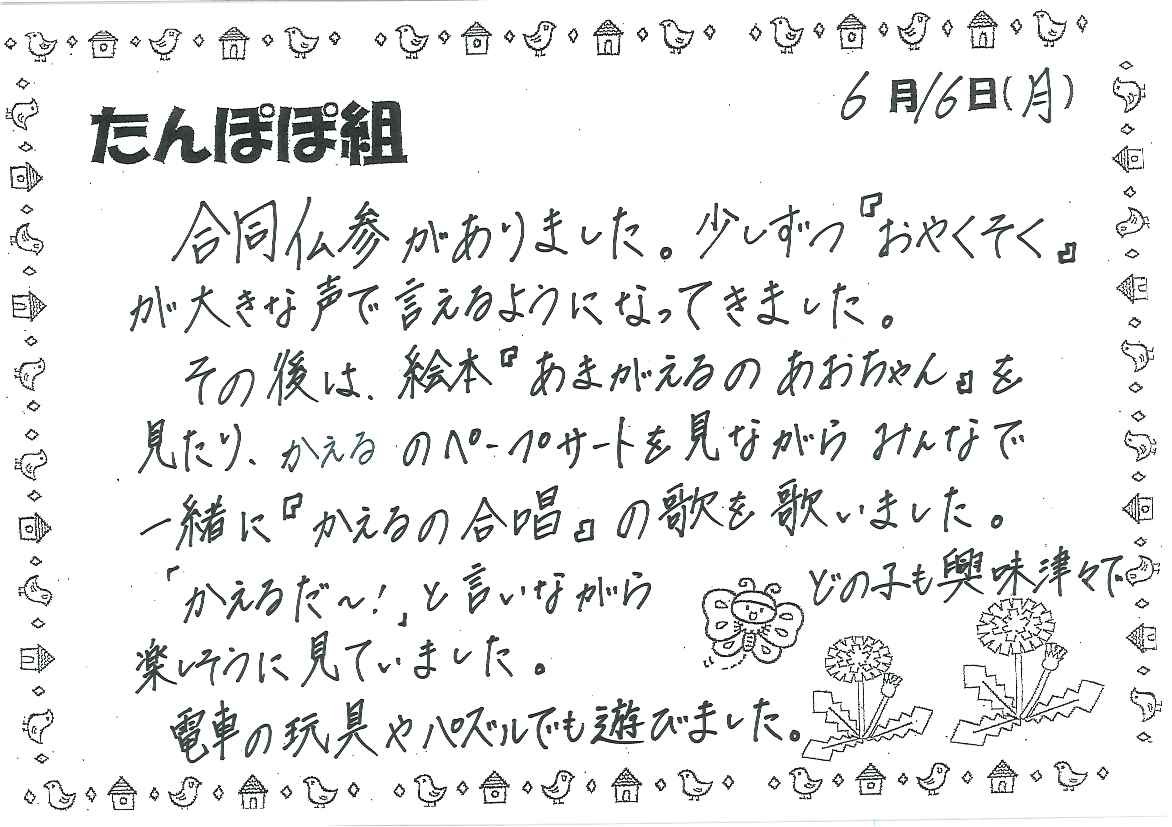 6月16日(月)
たんぽぽ組
合同仏参がありました。少しずつ『おやくそく』
が大きな声で言えるようになってきました。
その後は、絵本『あまがえるのあおちゃん』を
見たり、かえるのペープサートを見ながらみんなで
一緒に『かえるの合唱』の歌を歌いました。
「かえるだ〜!」と言いながら どの子も興味津々で
楽しそうに見ていました。
電車の玩具やパズルでも遊びました。